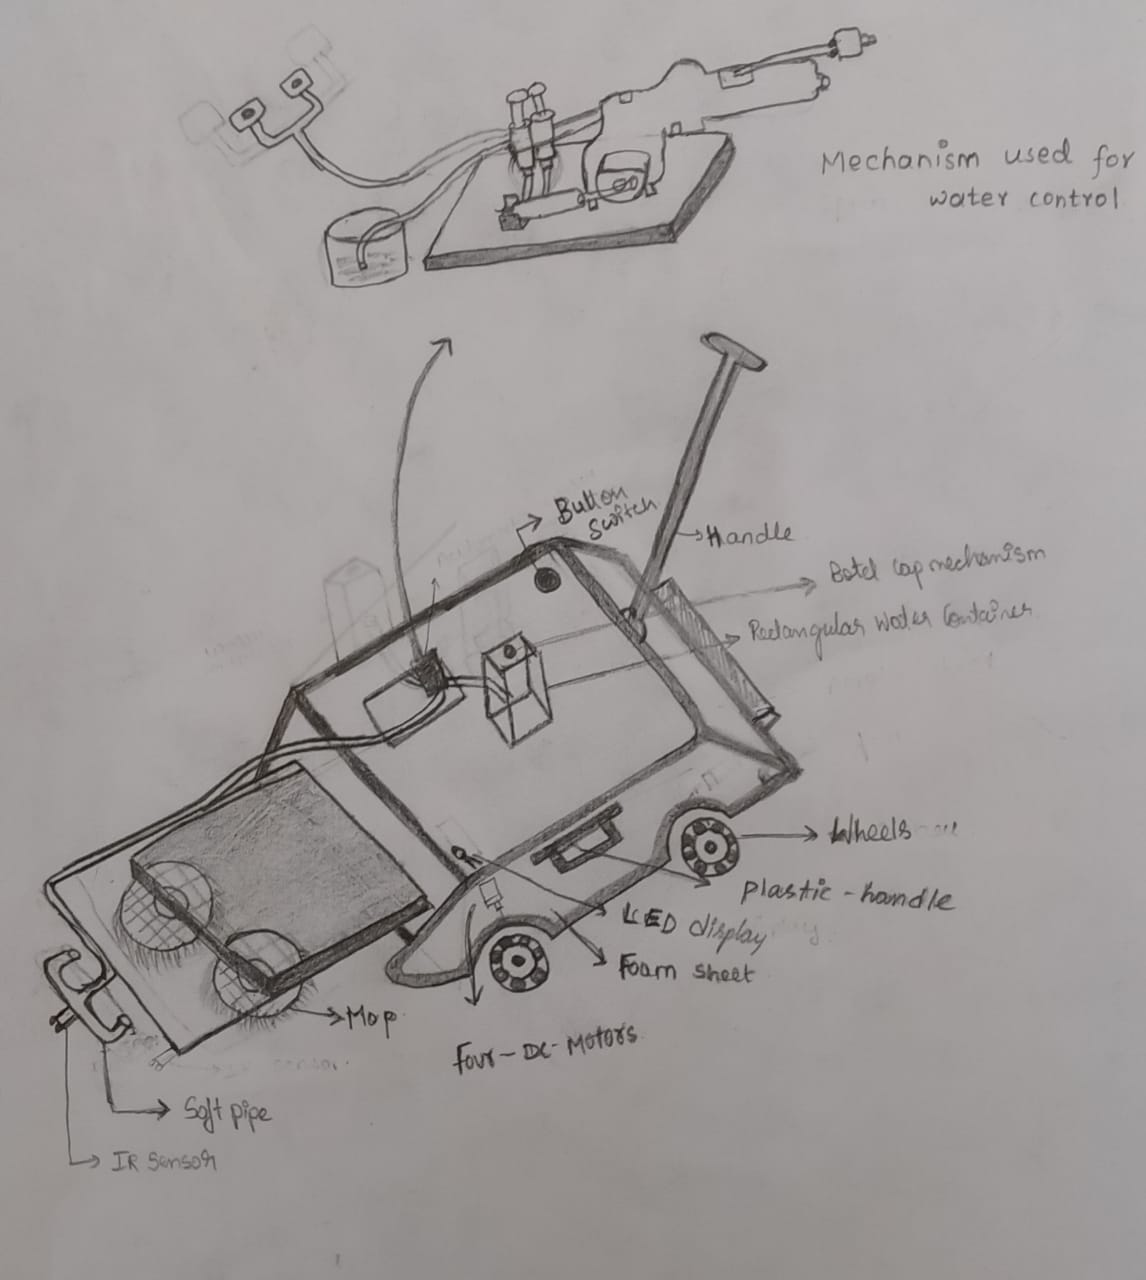 Mechanism used for
water control
Button
Switch
Handle
Botel cap mechanism
Rectangular water Container
Wheels
Plastic-handle
LED display
Foam sheet
Mop
Four-DC-Motors
Soft pipe
IR Sensor